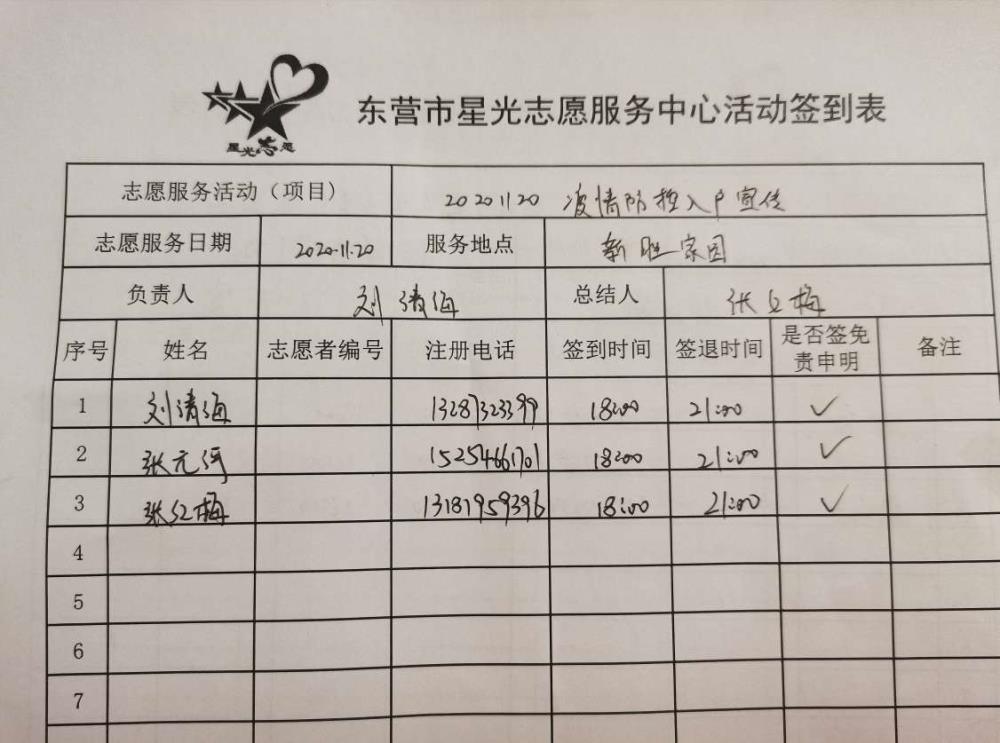 星光志愿
东营市星光志愿服务中心活动签到表
志愿服务活动（项目） 20201120 疫情防控入户宣传
志愿服务日期 2020.11.20 服务地点 新胜家园
负责人 刘清海 总结人 张红梅
序号 姓名 志愿者编号 注册电话 签到时间 签退时间 是否签免责申明 备注
1 刘清海 13287323399 18:00 21:00 ✓
2 张元河 15254661701 18:00 21:00 ✓
3 张红梅 13181959396 18:00 21:00 ✓
4
5
6
7